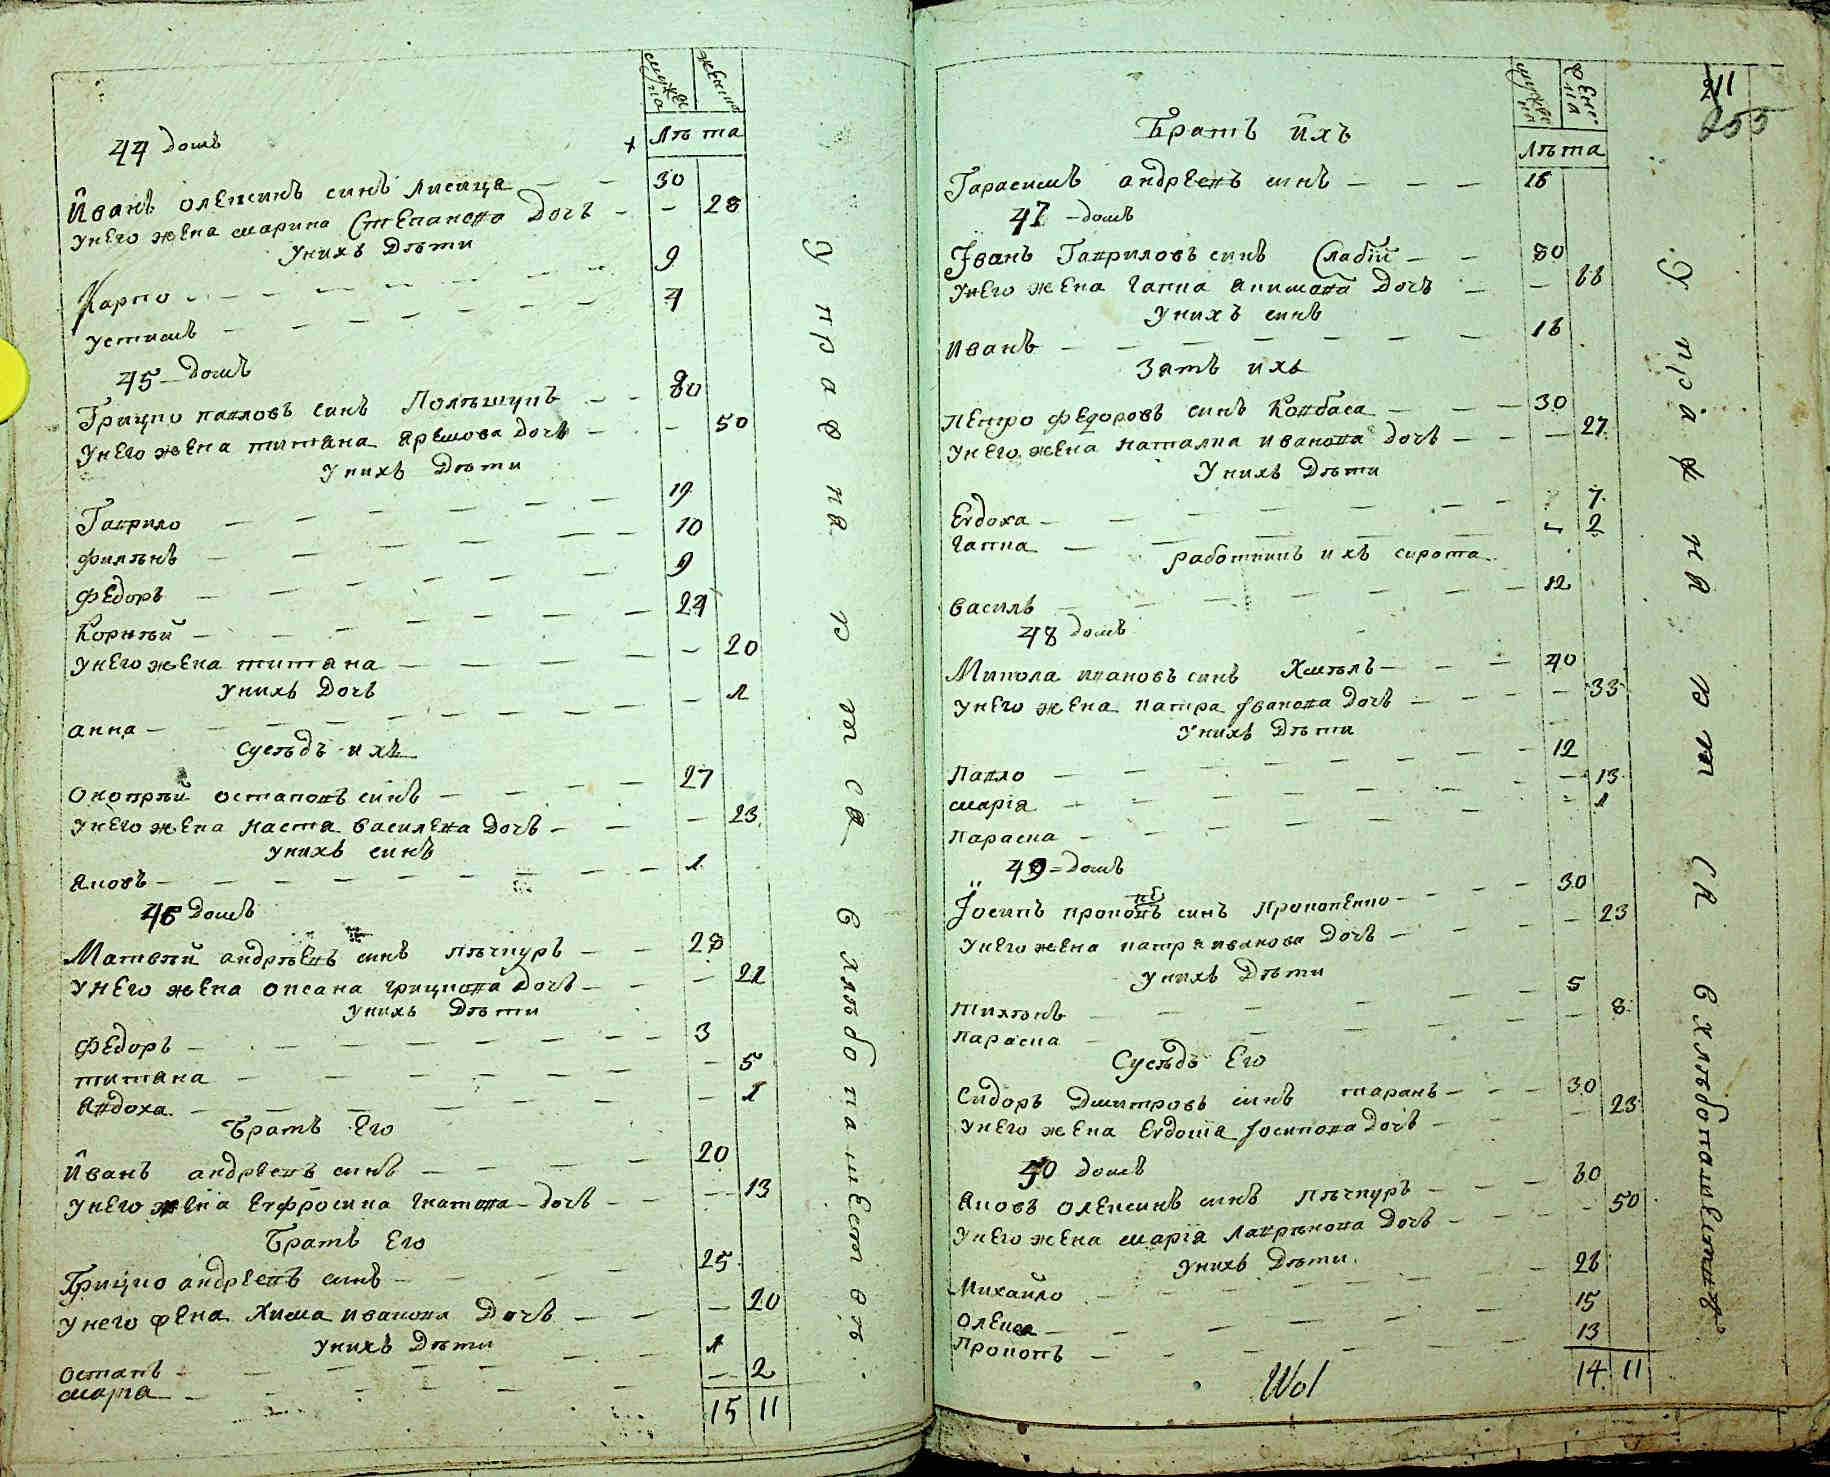 мужеска
женска
Лѣта
44 домъ
Иванъ олексинъ синъ лисица — — 30
У него жена марина Степанова дочъ — — 28
У нихъ дѣти
Карпо — — — 9
Устимъ — — — 4
45 — домъ
Грицко павловъ синъ Полѣшукъ — — 80
У него жена титяна яремова дочъ — — 50
У нихъ дѣти
Гаврило — — — 19
Филѣпъ — — — 10
Федоръ — — — 9
Корнѣй — — — 24
У него жена титяна — — — 20
У нихъ дочъ
анна — — — 1
Сусѣдъ ихъ
Онопрѣй остаповъ синъ — — — 27
У него жена настя василева дочъ — — 23
У нихъ синъ
Яковъ — — — 1
46 домъ
Матвѣй андрѣевъ синъ пѣчкуръ — — 28
У него жена оксана грицкова дочъ — — 21
У нихъ дѣти
Федоръ — — — 3
титяна — — — 5
Явдоха — — — 1
Братъ его
Иванъ андреевъ синъ — — — 20
У него жена Евфросина гнатова дочъ — — 13
Братъ его
Грицко андреевъ синъ — — — 25
У него жена Хима иванова дочъ — — 20
У нихъ дѣти
остапъ — — — 1
марія — — — 2
15 11
У права не в р т с я
в хлѣбопашествѣ
255
мужеска
женска
Лѣта
Братъ ихъ
Гарасимъ андреевъ синъ — — — 16
47 — домъ
Іванъ Гавриловъ синъ Слабій — — 80
У него жена гапка якимова дочъ — — 66
У нихъ синъ
Иванъ — — — 16
Зять ихъ
Петро федоровъ синъ Ковбаса — — — 30
У него жена наталка иванова дочъ — — — 27
У нихъ дѣти
Евдоха — — — 7
гапка — — — 2
работникъ ихъ сирота
василь — — — 12
48 домъ
Микола ивановъ синъ Хмѣль — — — 40
У него жена катря Іванова дочъ — — — 33
У нихъ дѣти
Павло — — — 12
марія — — — 13
параска — — — 1
49 = домъ
Іосипъ прокопъ синъ прокопенко — — — 30
У него жена катря иванова дочъ — — — 23
У нихъ дѣти
тихонъ — — — 5
параска — — — 8
Сусѣдъ его
Сидоръ дмитровъ синъ таранъ — — — 30
У него жена Евдокія Іосипова дочъ — — 23
50 домъ
Яковъ олексинъ синъ пѣчкуръ — — — 60
У него жена марія лаврѣнова дочъ — — — 50
У нихъ дѣти
Михайло — — — 26
олекса — — — 15
прокопъ — — — 13
14 11
в хлѣбопашествѣ